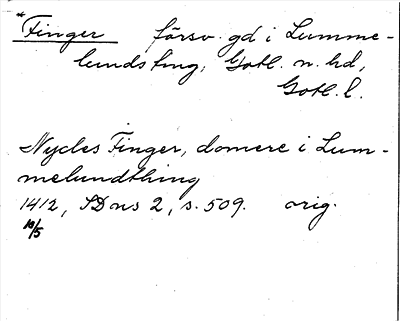 *Finger försv. gd i Lumme-
lunds ting, Gotl. n. hd,
Gotl. l.
Nycles Finger, domere i Lum-
melundthing
1412, SD ns 2, s. 509. orig.
10/5